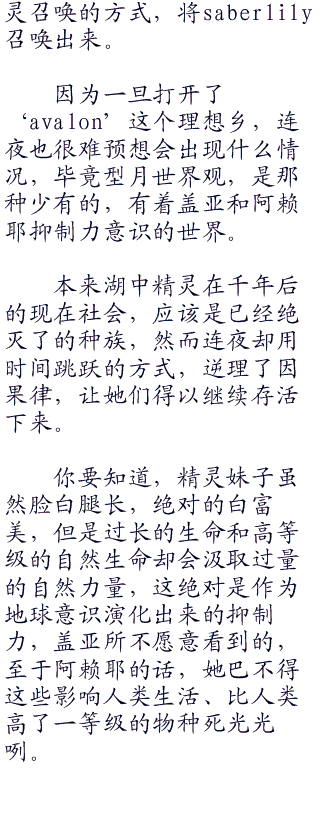 灵召唤的方式，将saberlily
召唤出来。
因为一旦打开了
‘avalon’这个理想乡，连
夜也很难预想会出现什么情
况，毕竟型月世界观，是那
种少有的，有着盖亚和阿赖
耶抑制力意识的世界。
本来湖中精灵在千年后
的现在社会，应该是已经绝
灭了的种族，然而连夜却用
时间跳跃的方式，逆理了因
果律，让她们得以继续存活
下来。
你要知道，精灵妹子虽
然脸白腿长，绝对的白富
美，但是过长的生命和高等
级的自然生命却会汲取过量
的自然力量，这绝对是作为
地球意识演化出来的抑制
力，盖亚所不愿意看到的，
至于阿赖耶的话，她巴不得
这些影响人类生活、比人类
高了一等级的物种死光光
咧。